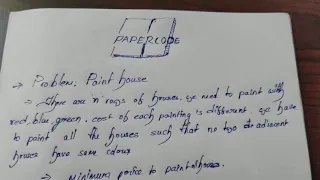 PAPERCODE
→ Problem: Paint house
→ There are 'n' rows of houses, we need to paint with
red, blue, green. cost of each painting is different we have
to paint all the houses such that no two adjacent
houses have same colour
• minimum price to paint houses.